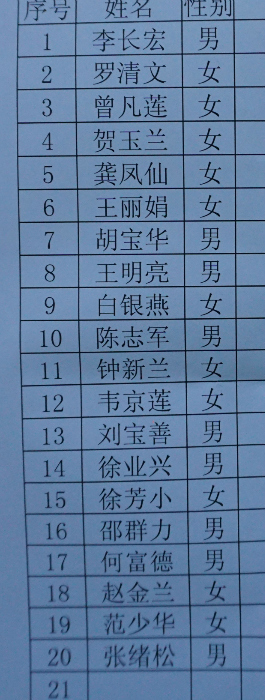 序号 姓名 性别
1 李长宏 男
2 罗清文 女
3 曾凡莲 女
4 贺玉兰 女
5 龚凤仙 女
6 王丽娟 女
7 胡宝华 男
8 王明亮 男
9 白银燕 女
10 陈志军 男
11 钟新兰 女
12 韦京莲 女
13 刘宝善 男
14 徐业兴 男
15 徐芳小 女
16 邵群力 男
17 何富德 男
18 赵金兰 女
19 范少华 女
20 张绪松 男
21